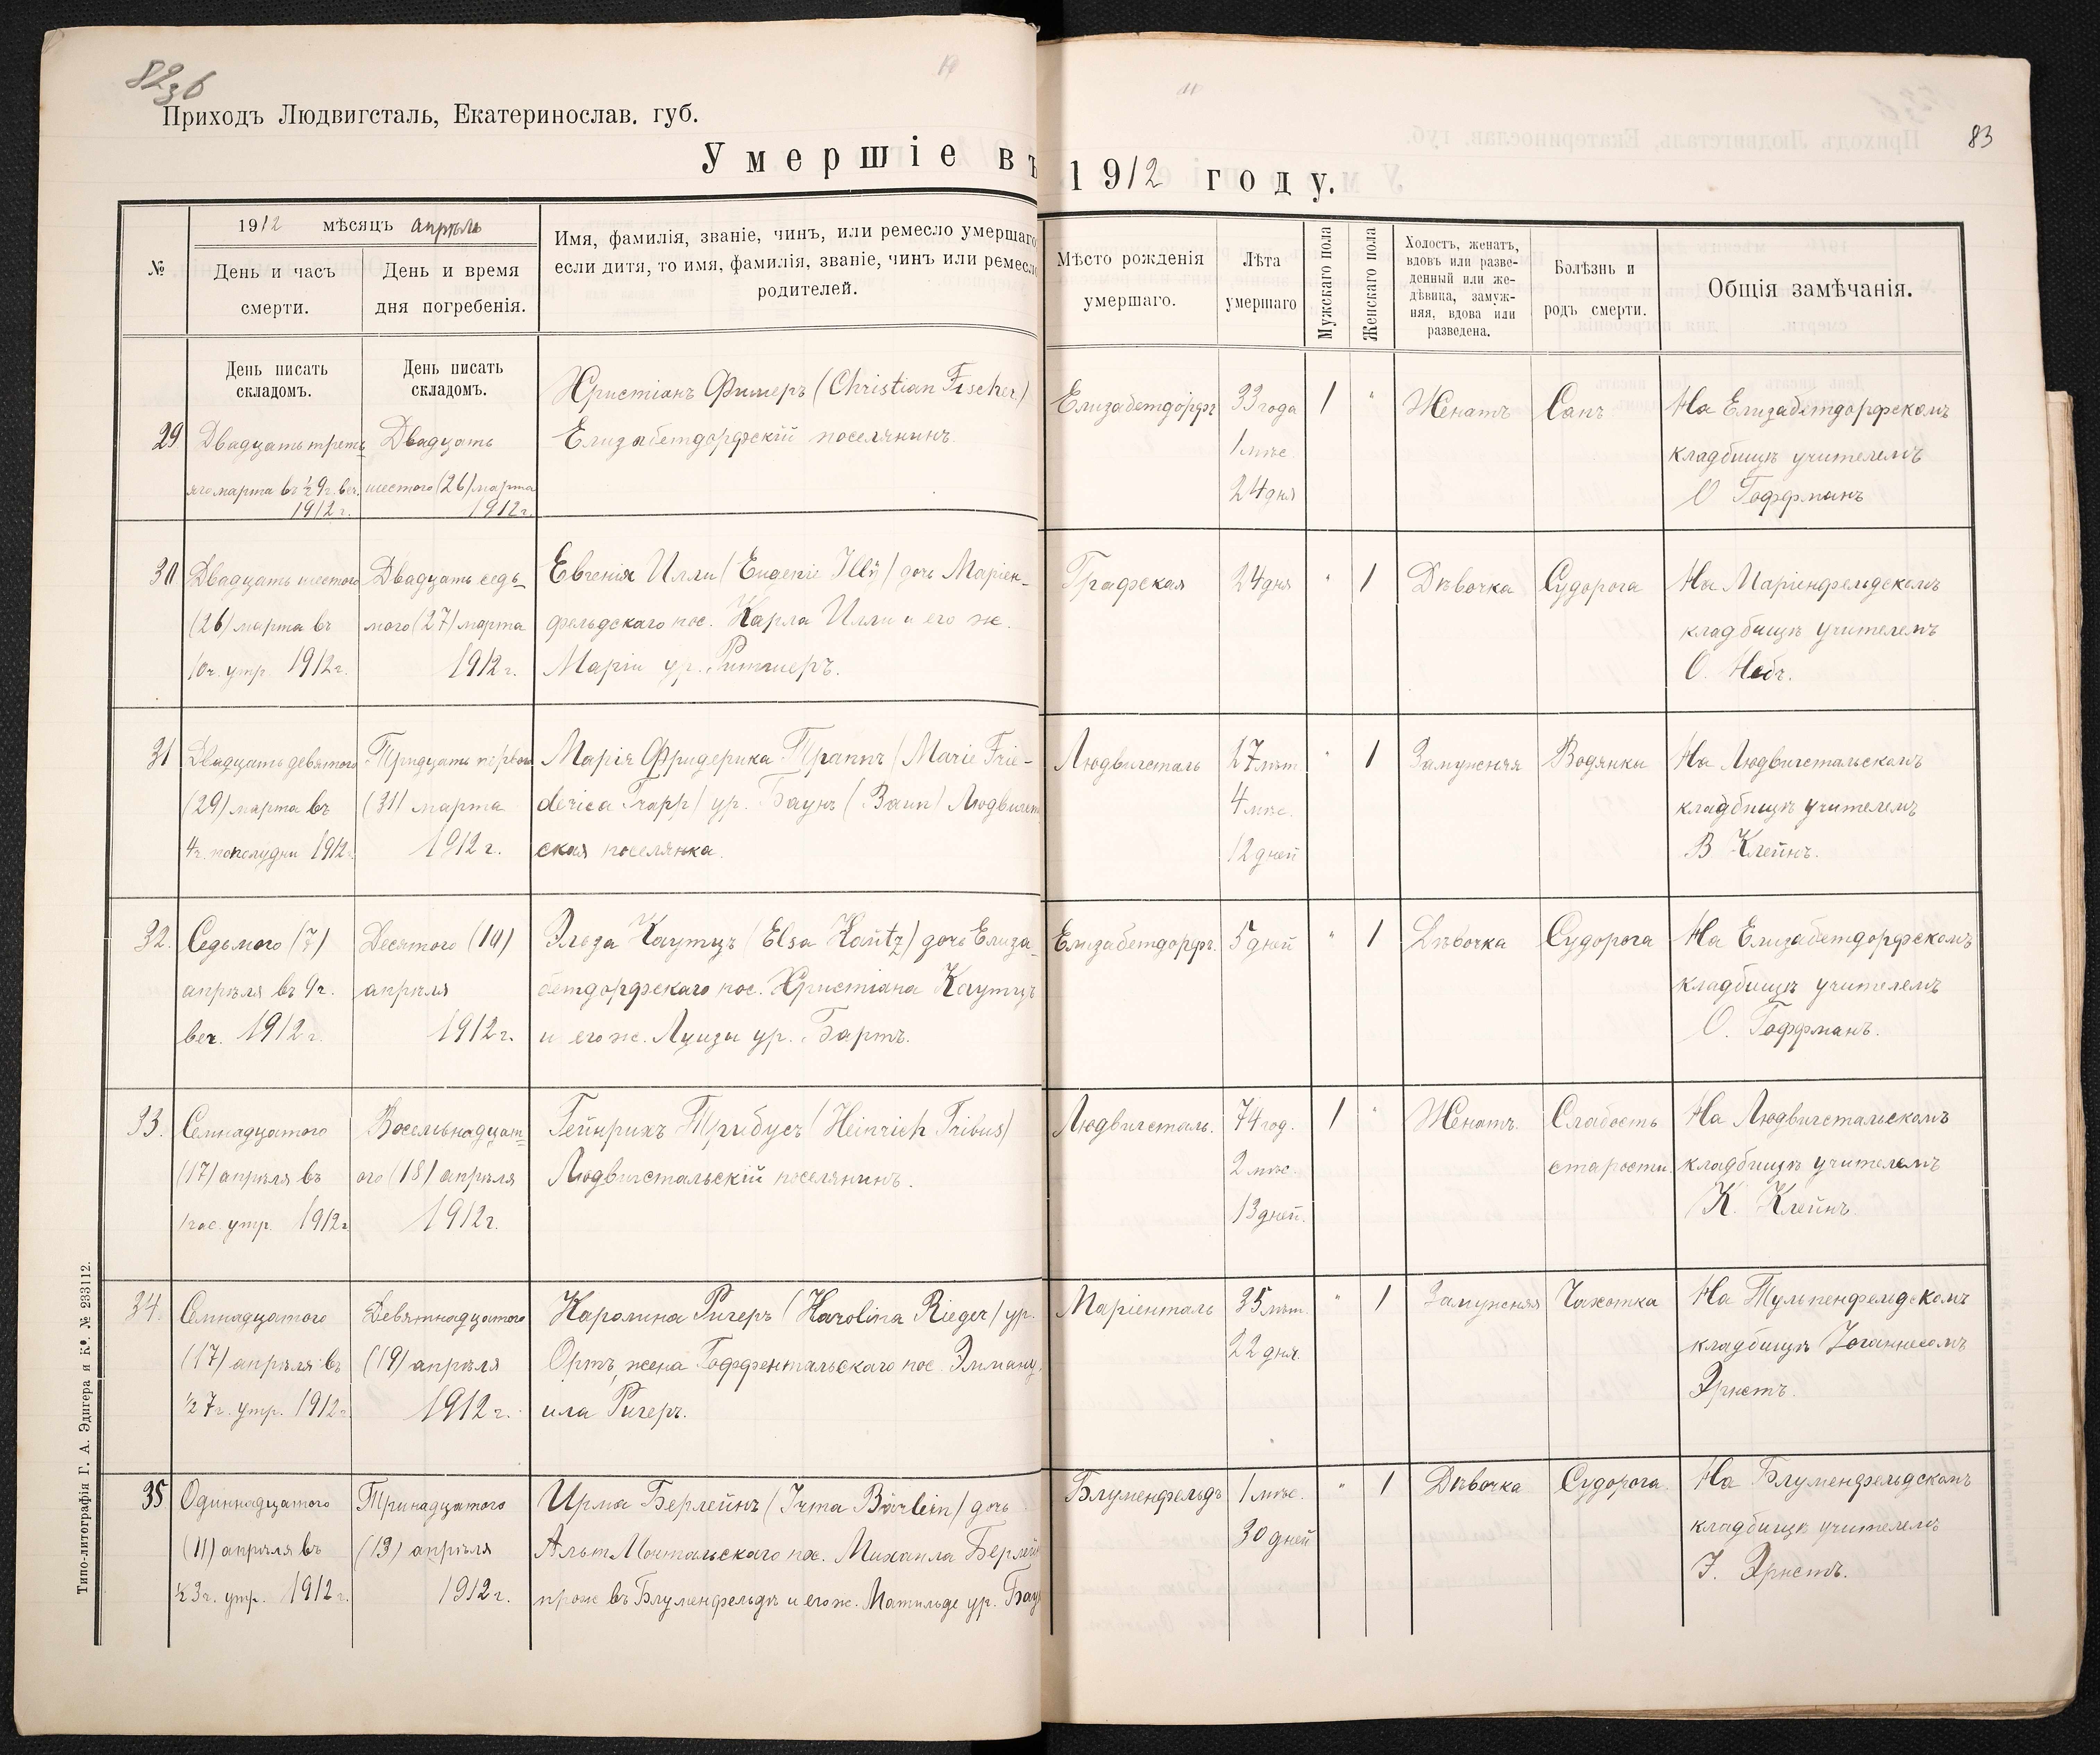 82зб
Приходъ Людвигсталь, Екатеринослав. губ.
Умершіе въ 1912 году.
83
1912 мѣсяцъ апрѣль
№
День и часъ смерти.
День и время дня погребенія.
Имя, фамилія, званіе, чинъ, или ремесло умершаго
если дитя, то имя, фамилія, званіе, чинъ или ремесло
родителей.
Мѣсто рожденія умершаго.
Лѣта умершаго
Мужскаго пола
Женскаго пола
Холостъ, женатъ,
вдовъ или разве-
денный или же-
дѣвица, замуж-
няя, вдова или
разведена.
Болѣзнь и родъ смерти.
Общія замѣчанія.
День писать складомъ.
День писать складомъ.
29
Двадцать треть-
яго марта въ ½ 9 ч. веч.
1912 г.
Двадцать
шестого (26) марта
1912 г.
Христіанъ Фишеръ (Christian Fischer)
Елизабетдорфскій поселянинъ.
Елизабетдорфъ
33 года
1 мѣс.
24 дня
1
"
Женатъ
Сапъ
На Елизабетдорфскомъ
кладбищѣ учителемъ
О Гоффманъ
30
Двадцать шестого
(26) марта въ
10 ч. утр. 1912 г.
Двадцать седь-
мого (27) марта
1912 г.
Евгенія Илли (Eugenie Illÿ) дочь Маріен-
фельдскаго пос. Карла Илли и его ж.
Маріи ур.
Графская
24 дня
"
1
Дѣвочка
Судорога
На Маріенфельдскомъ
кладбищѣ учителемъ
О.
31
Двадцать девятого
(29) марта въ
4 ч. пополудни 1912 г.
Тридцать первого
(31) марта
1912 г.
Марія Фридерика Траппъ (Marie Frie-
derica Trapp) ур. Баунъ (Baun) Людвигсталь
ская поселянка.
Людвигсталь
27 лѣт
4 мѣс.
12 дней
"
1
Замужняя
Водянки
На Людвигстальскомъ
кладбищѣ учителемъ
В Клейнъ.
32.
Седьмого (7)
апрѣля въ 9 ч.
веч. 1912 г.
Десятого (10)
апрѣля
1912 г.
Эльза Каутцъ (Elsa Kautz) дочь Елиза-
бетдорфскаго пос. Христіана Каутцъ
и его ж. Луизы ур. Бартъ.
Елизабетдорфъ.
5 дней
"
1
Дѣвочка
Судорога
На Елизабетдорфскомъ
кладбищѣ учителемъ
О. Гоффманъ.
33.
Семнадцатого
(17) апрѣля въ
1 час. утр. 1912 г
Восемьнадцат-
ого (18) апрѣля
1912 г.
Гейнрихъ Трибусъ (Heinrich Tribus)
Людвигстальскій поселянинъ.
Людвигсталь.
74 год.
2 мѣс.
13 дней.
1
"
Женатъ.
Слабость
старости.
На Людвигстальскомъ
кладбищѣ учителемъ
К. Клейнъ
34.
Семнадцатого
(17) апрѣля въ
½ 7 ч. утр. 1912 г.
Девятнадцатого
(19) апрѣля
1912 г.
Каролина Ригеръ (Karolina Rieger) ур.
Ортъ, жена Гоффентальскаго пос. Эмману
ила Ригеръ.
Маріенталь
35 лѣт.
22 дня.
"
1
Замужняя
Чахотка
На Тульпенфельдскомъ
кладбищѣ Іоганнесомъ
Эрнстъ.
35
Одиннадцатого
(11) апрѣля въ
½ 3 ч. утр. 1912 г.
Тринадцатого
(13) апрѣля
1912 г.
Ирма Берлейнъ (Irma Bärlein) дочь
Альт Монтальскаго пос. Михаила Берлей
прож въ Блуменфельдѣ и его ж. Матильде ур.
Блуменфельдъ
1 мѣс.
30 дней
"
1
Дѣвочка
Судорога.
На Блуменфельдскомъ
кладбищѣ учителемъ
І. Эрнстъ.
Типо-литографія Г. А. Эдигера и Ко. № 233112.